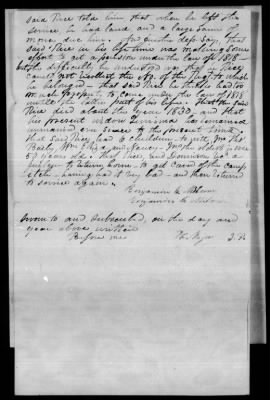 said Rice told him that when he left the
service he had land and a large sum of
money due him. And further deft. Says that
said Rice in his life time was making some
effort to get a pension under the law of 1818 -
but the difficulty he understood was the said Rice
could not recollect the No. of the Regt. to which
he belonged - that said Rice he thinks had too
much property to come under the law of 1818
until the latter part of his life. That the said
Rice died about the year 1830, and that
his present widow Jemima has remained
unmarried ever since to the present time
that said Rice had 6 children, to wit,
Wm and Nancy - the oldest is over
57 years old. Rice, had
to return home - to get cured of the camp
itch - having had it very bad - and then returned
to service again.
Benjamin
Benjamin
Sworn to and subscribed, on the day and
year above written
Before me J. P.